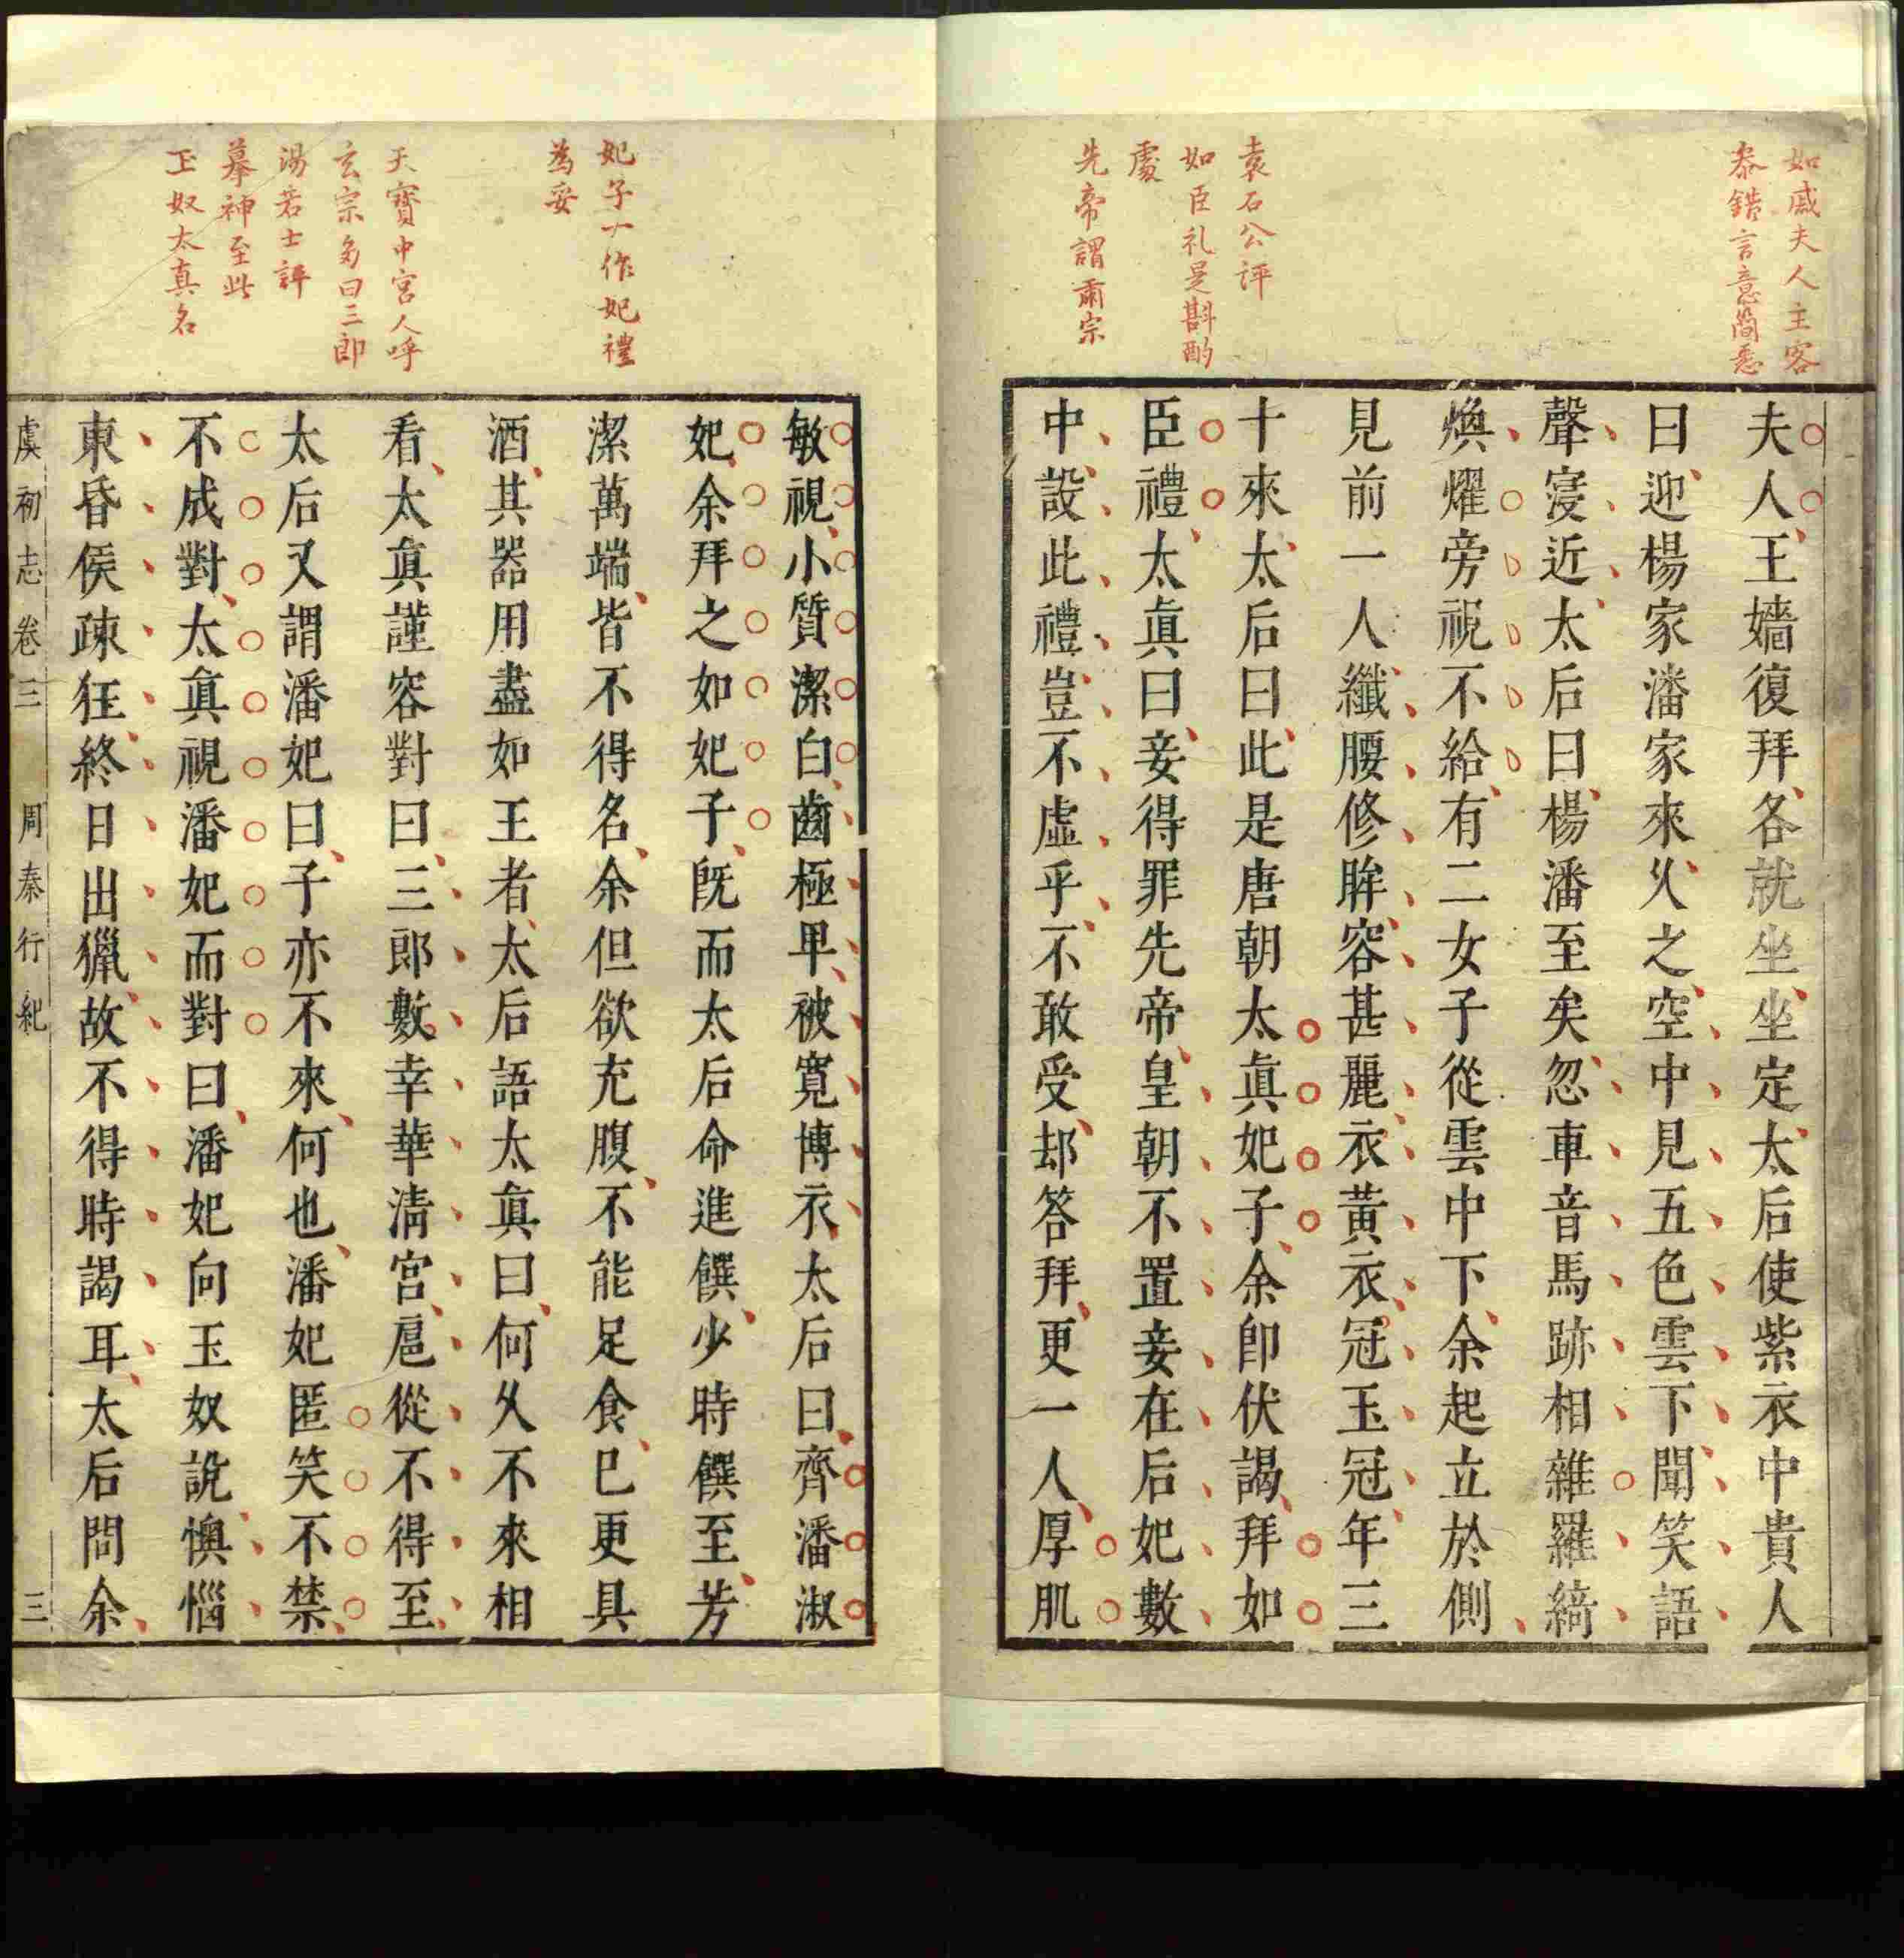 如戚夫人主客
叅錯言意簡悉
袁石公評
如臣礼是斟酌
處
先帝謂肅宗
夫人王嬙復拜各就坐坐定太后使紫衣中貴人
曰迎楊家潘家來乆之空中見五色雲下聞笑語
聲寖近太后曰楊潘至矣忽車音馬跡相雜羅綺
煥燿旁視不給有二女子從雲中下余起立於側
見前一人纖腰修眸容甚麗衣黃衣冠玉冠年三
十來太后曰此是唐朝太眞妃子余卽伏謁拜如
臣禮太眞曰妾得罪先帝皇朝不置妾在后妃數
中設此禮豈不虛乎不敢受却答拜更一人厚肌
妃子一作妃禮
為妥
天寶中宮人呼
玄宗多曰三郎
湯若士評
摹神至此
玉奴太真名
敏視小質潔白齒極早被寬博衣太后曰齊潘淑
妃余拜之如妃子旣而太后命進饌少時饌至芳
潔萬端皆不得名余但欲充腹不能足食已更具
酒其器用盡如王者太后語太眞曰何乆不來相
看太眞謹容對曰三郎數幸華淸宮扈從不得至
太后又謂潘妃曰子亦不來何也潘妃匿笑不禁
不成對太眞視潘妃而對曰潘妃向玉奴說懊惱
東昏侯疎狂終日出獵故不得時謁耳太后問余
虞初志卷三 周秦行紀 三